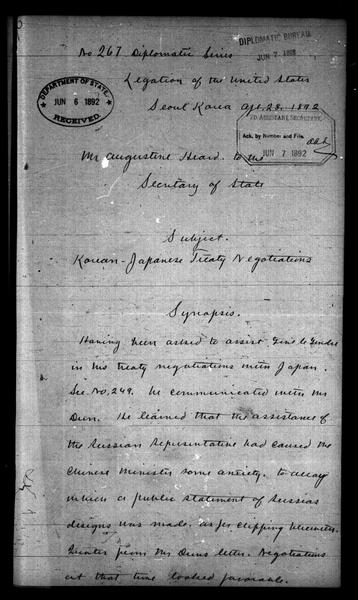 No 267 Diplomatic Series
DIPLOMATIC BUREAU
JUN 7 1892
Legation of the United States
DEPARTMENT OF STATE,
JUN 6 1892
RECEIVED.
Seoul Korea Apl. 28. 1892
2D ASSISTANT SECRETARY,
Ack. by Number and File.
JUN 7 1892
Mr Augustine Heard. to the
Secretary of State
Subject.
Korean-Japanese Treaty Negotiations
Synopsis.
Having been asked to assist Gen'l LeGendre
in his treaty negotiations with Japan.
See No. 249. he communicated with Mr
Dun. He learned that the assistance of
the Russian Representative had caused the
Chinese Minister some anxiety. to allay
which a public statement of Russias
designs was made. as per clipping herewith.
Quotes from Mr Duns letter. Negotiations
at that time looked favorable.